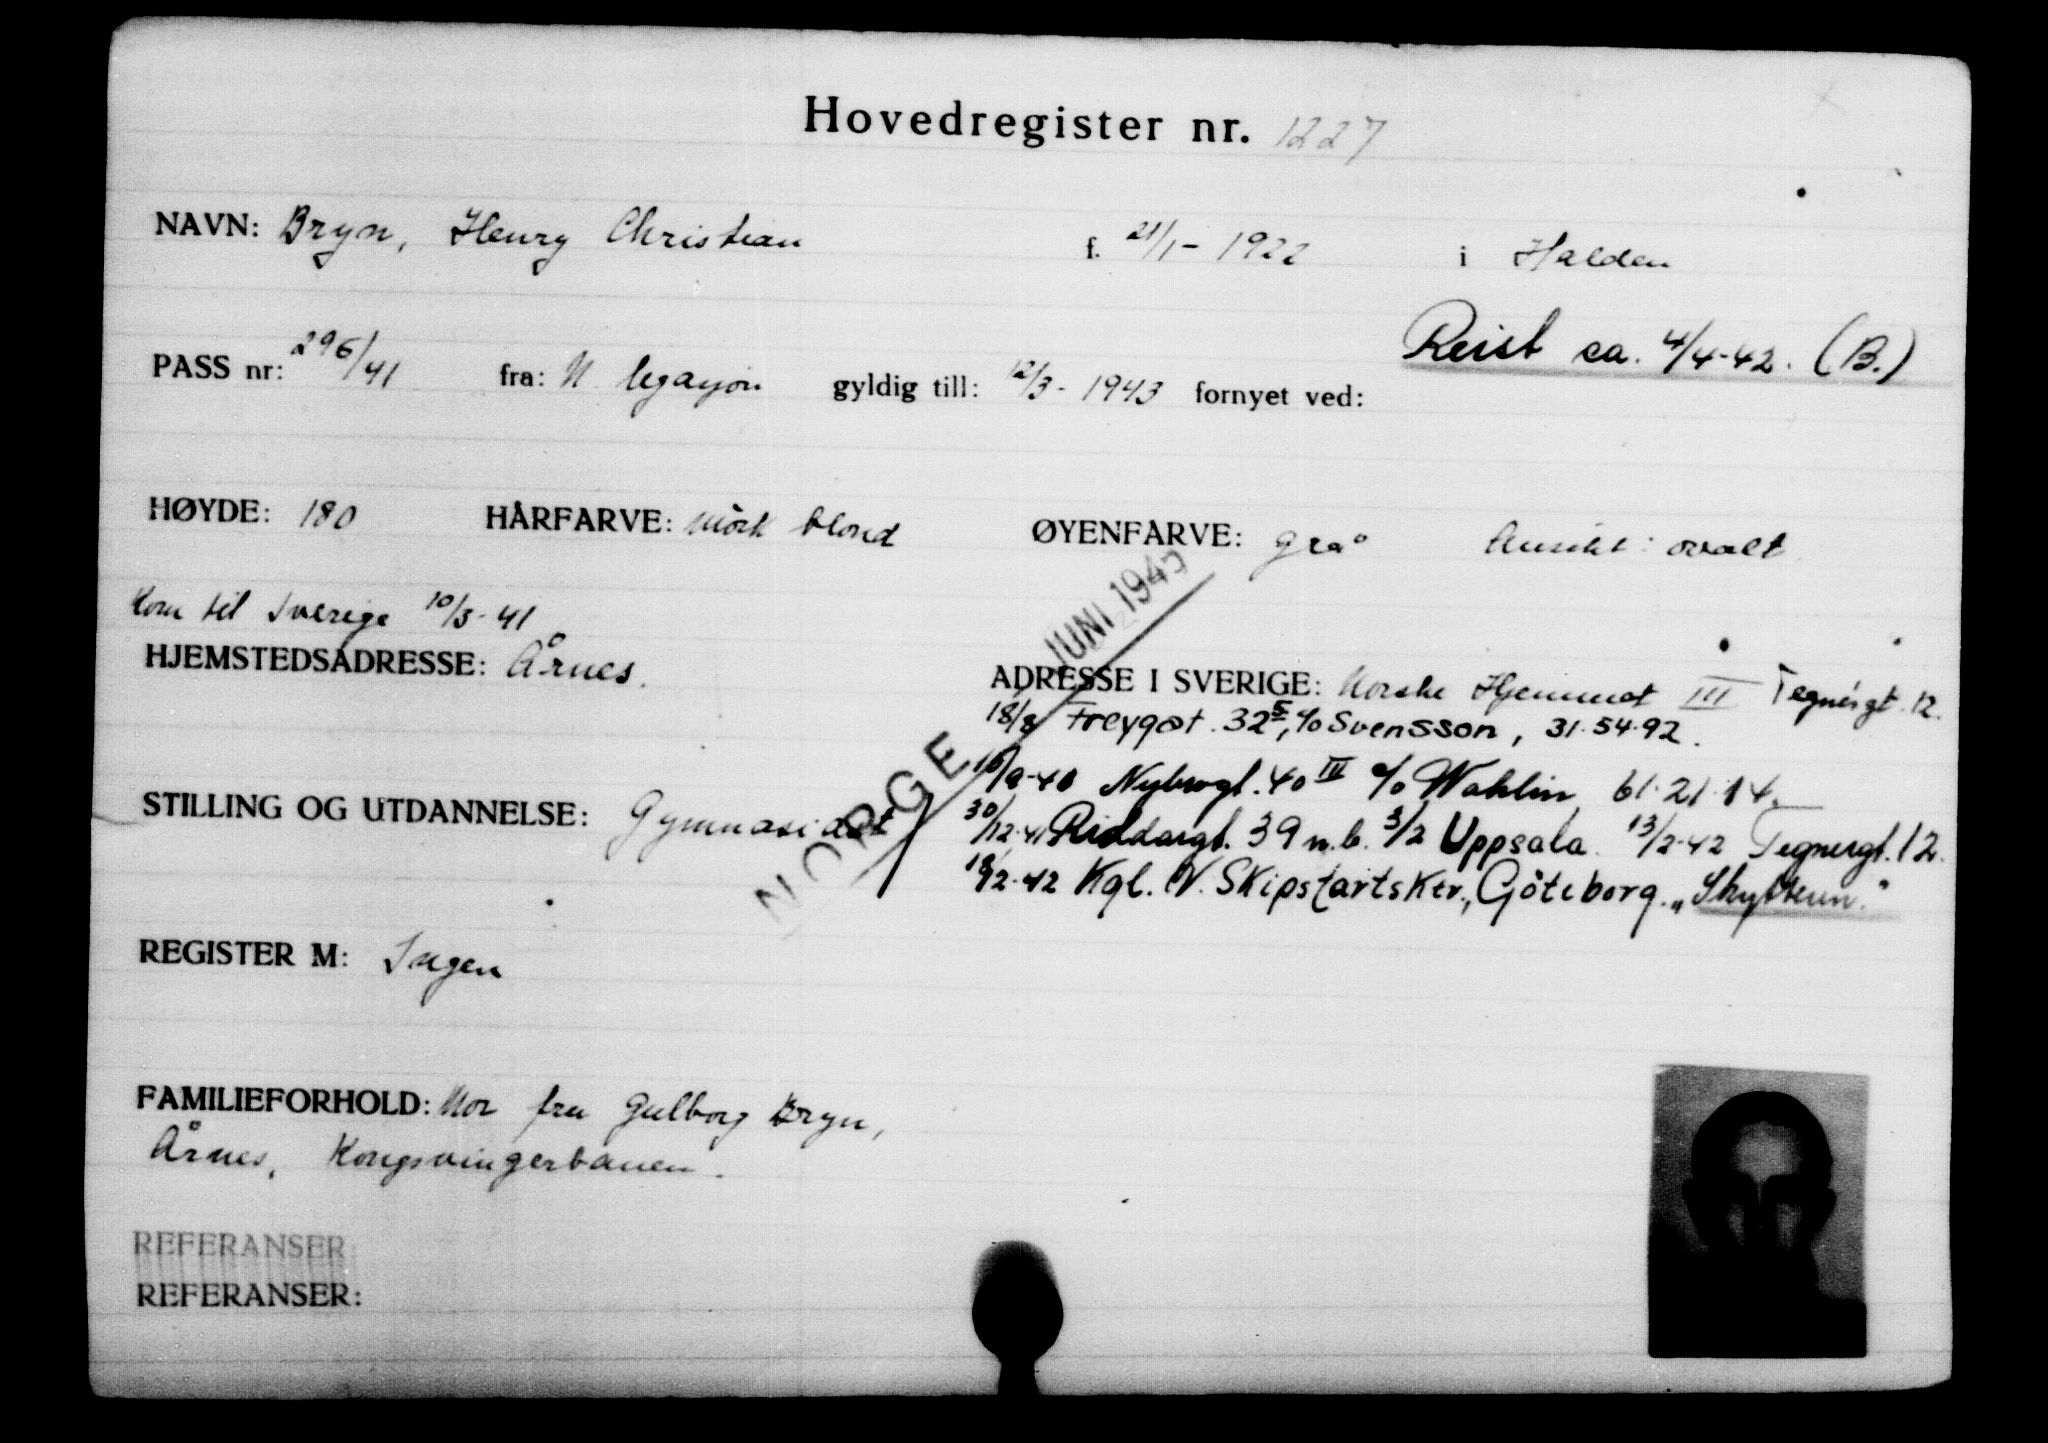 Hovedregister nr. 1227
NAVN: Bryn, Henry Christian f. 21/1 - 1922 i Halden
Reist ca. 4/4-42. (B.)
PASS nr: 296/41 fra: N. legasjon gyldig till: 12/3 - 1943 fornyet ved:
HØYDE: 180 HÅRFARVE: mörk blond ØYENFARVE: grå Ansikt: ovalt
JUNI 1945
Kom til Sverige 10/3-41
HJEMSTEDSADRESSE: Årnes. ADRESSE I SVERIGE: Norske Hjemmet III Tegnérgt. 12.
18/8 Freygat. 32 5, c/o Svensson, 31.54.92.
NORGE
16/9-40 Nybrogt. 40 IV c/o Wahlin 61.21.14.
STILLING OG UTDANNELSE: Gymnasiast 30/12-41 Riddargt. 39 n.b. 3/2 Uppsala. 13/2-42 Tegnergt. 12.
19/2-42 Kgl. N. Skipsfartsktr., Göteborg. „Skytteren."
REGISTER M: Ingen
FAMILIEFORHOLD: Mor fru Gulborg Bryn,
Årnes, Kongsvingerbanen.
REFERANSER
REFERANSER: